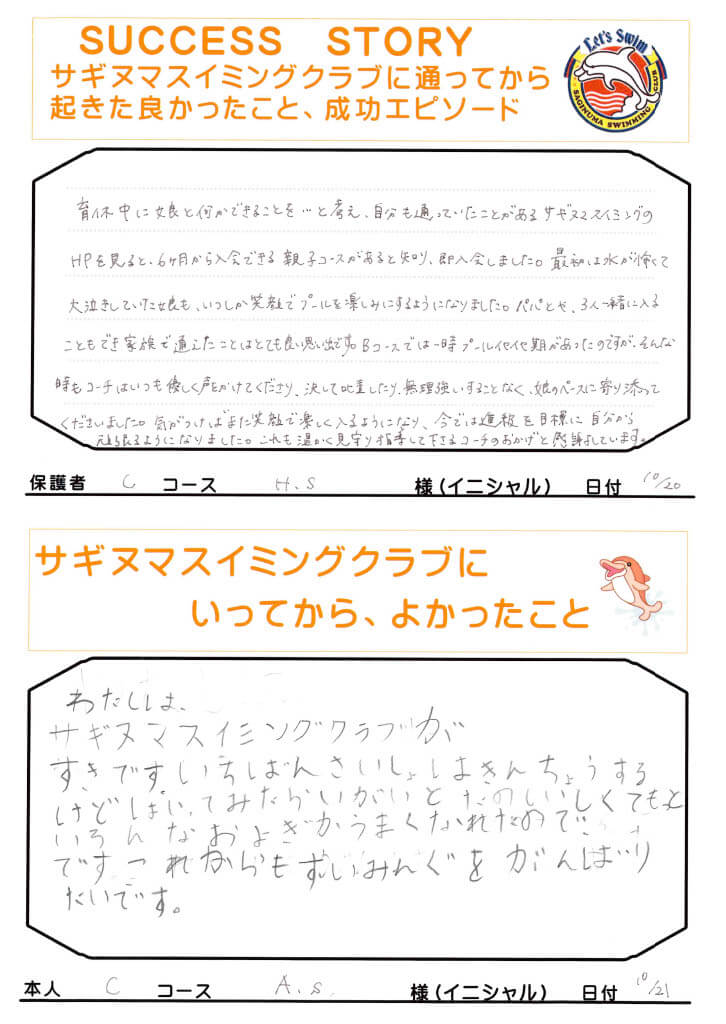 SUCCESS STORY
サギヌマスイミングクラブに通ってから
起きた良かったこと、成功エピソード
Let's Swim
SAGINUMA SWIMMING CLUB
育休中に娘と何かできることを…と考え、自分も通っていたことがあるサギヌマスイミングの
HPを見ると、6ヶ月から入会できる親子コースがあると知り、即入会しました。最初は水が怖くて
大泣きしていた娘も、いつしか笑顔でプールを楽しみにするようになりました。パパとや、3人一緒に入る
こともでき家族で通えたことはとても良い思い出です。Bコースでは一時プールイヤイヤ期があったのですが、そんな
時もコーチはいつも優しく声をかけてくださり、決して比較したり、無理強いすることなく、娘のペースに寄り添って
くださいました。気がつけばまた笑顔で楽しく入るようになり、今では進級を目標に自分から
頑張るようになりました。これも温かく見守り指導して下さるコーチのおかげと感謝しています。
保護者 C コース H.S 様（イニシャル） 日付 10/20
サギヌマスイミングクラブに
いってから、よかったこと
わたしは、
サギヌマスイミングクラブが
すきです いちばんさいしょはきんちょうする
けどはいってみたらいがいとたのしいしくてもっと
いろんなおよぎがうまくなれたので
ですこれからもすいみんぐをがんばり
たいです。
本人 C コース A.S. 様（イニシャル） 日付 10/21